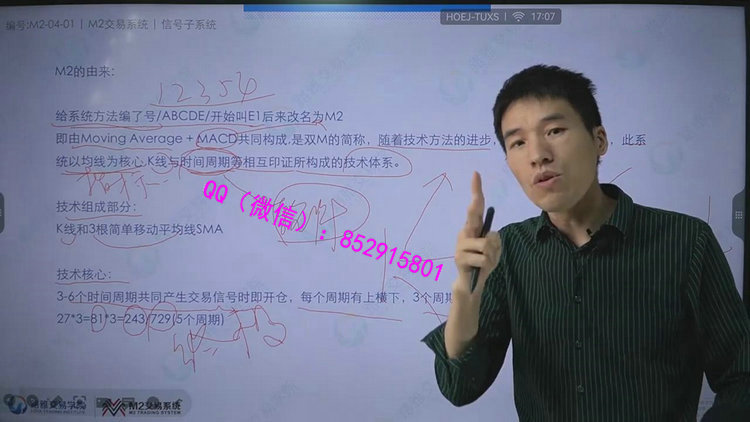 编号:M2-04-01 | M2交易系统 | 信号子系统
HOEJ-TUXS 17:07
M2的由来:
12354
给系统方法编了号/ABCDE/开始叫E1后来改名为M2
即由Moving Average + MACD共同构成,是双M的简称，随着技术方法的进步，
，此系
统以均线为核心,K线与时间周期等相互印证所构成的技术体系。
指示
QQ（微信）：852915801
技术组成部分:
K线和3根简单移动平均线SMA
技术核心:
3-6个时间周期共同产生交易信号时即开仓，每个周期有上横下，3个周期
27*3=81*3=243/729(5个周期)
交易学院
M2交易系统
M2 TRADING SYSTEM